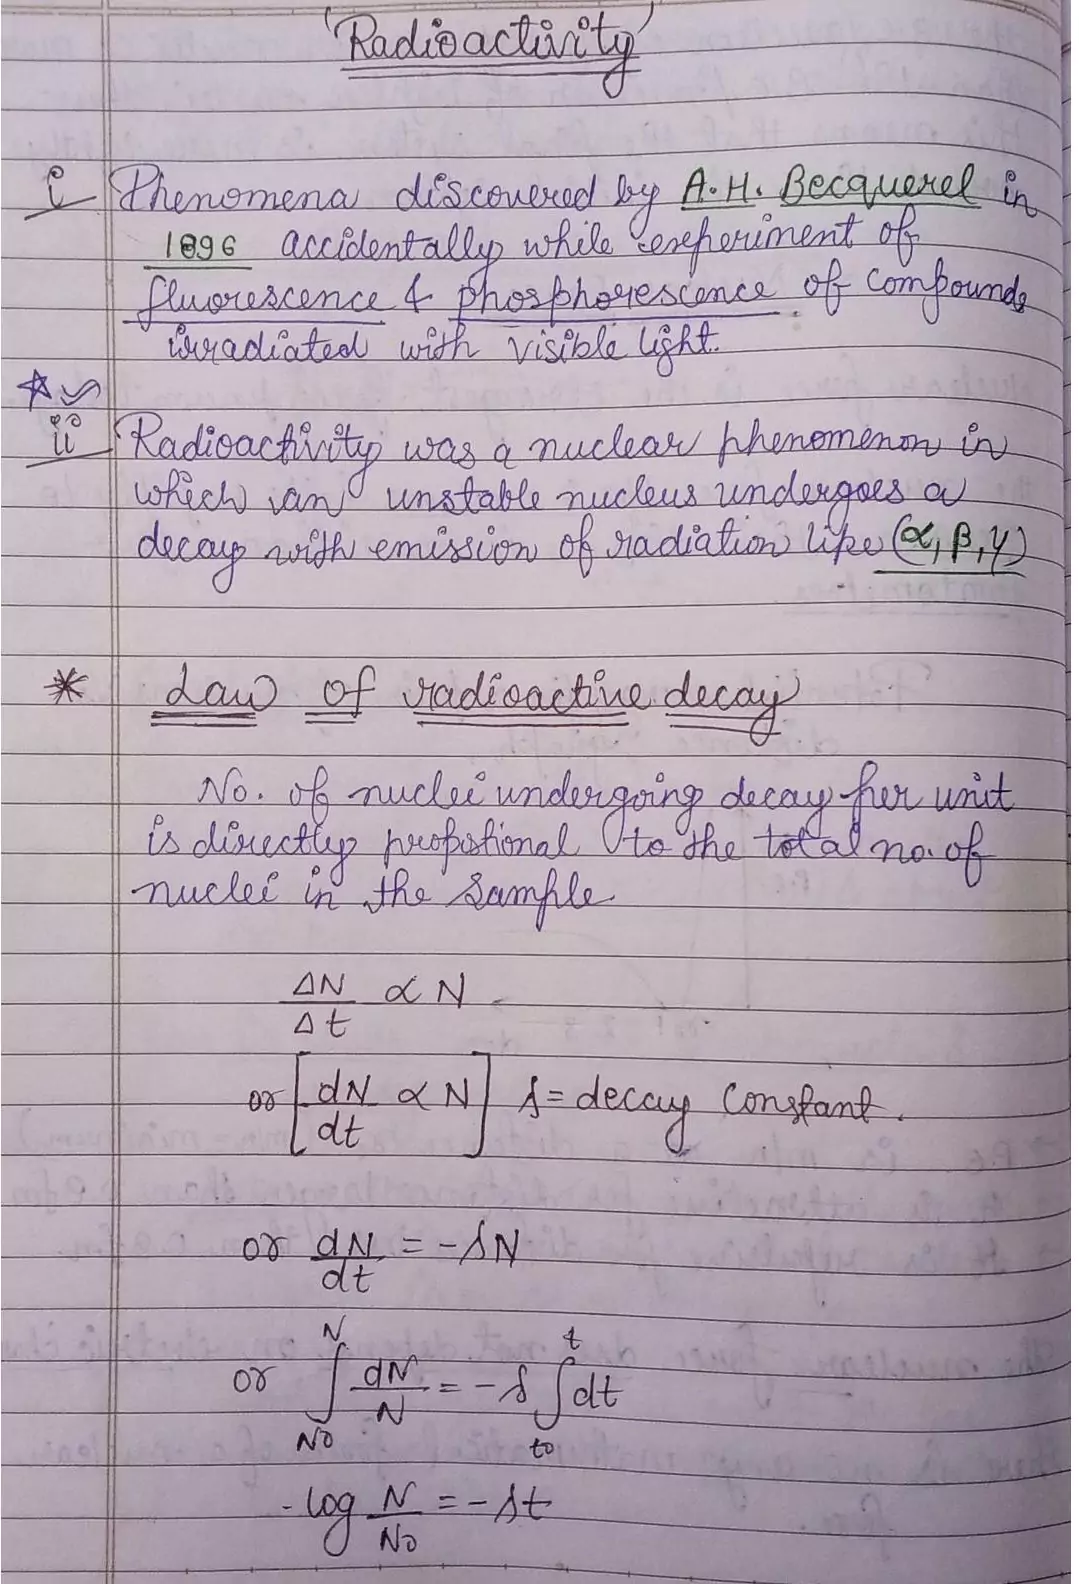 'Radioactivity'
i Phenomena discovered by A.H. Becquerel in
1896 accidentally while experiment of
fluorescence & phosphorescence of compounds
irradiated with visible light.
ii Radioactivity was a nuclear phenomenon in
which an unstable nucleus undergoes a
decay with emission of radiation like (α, β, γ)
* Law of radioactive decay
No. of nuclei undergoing decay per unit
is directly propotional to the total no. of
nuclei in the sample
ΔN/Δt ∝ N
or [dN/dt ∝ N] λ = decay constant.
or dN/dt = -λN
or ∫_{N0}^{N} dN/N = -λ ∫_{t0}^{t} dt
- log N/N0 = -λt